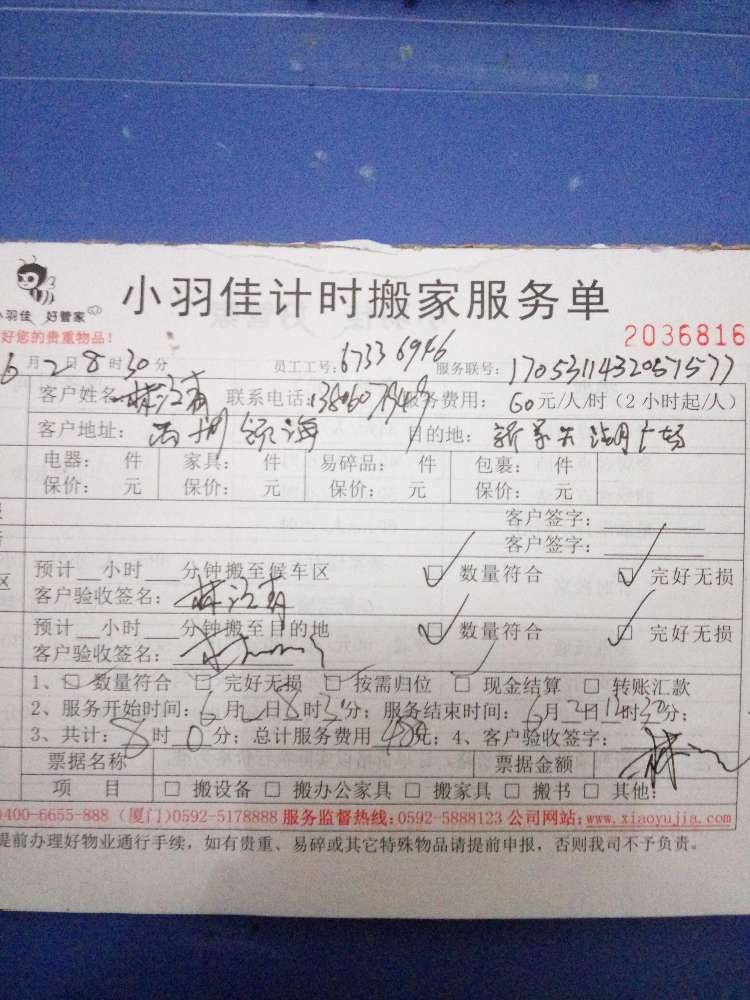 小羽佳 好管家
小羽佳计时搬家服务单
好您的贵重物品!
2036816
6月2日8时30分 员工工号:67336946 服务联号:1705311432051577
客户姓名: 联系电话: 服务费用: 60元/人/时(2小时起/人)
客户地址: 目的地:
电器: 件 家具: 件 易碎品: 件 包裹: 件
保价: 元 保价: 元 保价: 元 保价: 元
客户签字:
客户签字:
预计__小时___分钟搬至候车区 ☑ 数量符合 ☑ 完好无损
客户验收签名:
预计__小时___分钟搬至目的地 ☑ 数量符合 ☑ 完好无损
客户验收签名:
1、☑ 数量符合 ☑ 完好无损 ☑ 按需归位 ☑ 现金结算 □ 转账汇款
2、服务开始时间:6月2日8时30分;服务结束时间:6月2日12时30分;
3、共计:8时0分;总计服务费用480元;4、客户验收签字:
票据名称 票据金额
项 目 □ 搬设备 □ 搬办公家具 □ 搬家具 □ 搬书 □ 其他:
400-6655-888 (厦门)0592-5178888 服务监督热线:0592-5888123 公司网站:www.xiaoyujia.com
提前办理好物业通行手续,如有贵重、易碎或其它特殊物品请提前申报,否则我司不予负责。